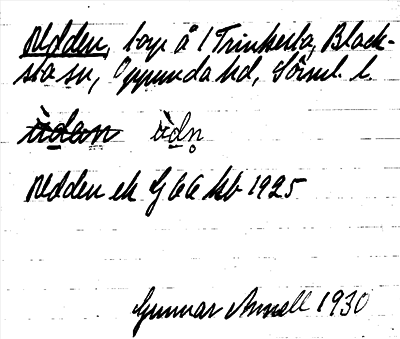 Ådden, torp å 1 Trinkesta, Black-
sta sn, Oppunda hd, Sörml. l.
ùdan ùdn̥
Ådden ek G 66 kb 1925
Gunnar Annell 1930